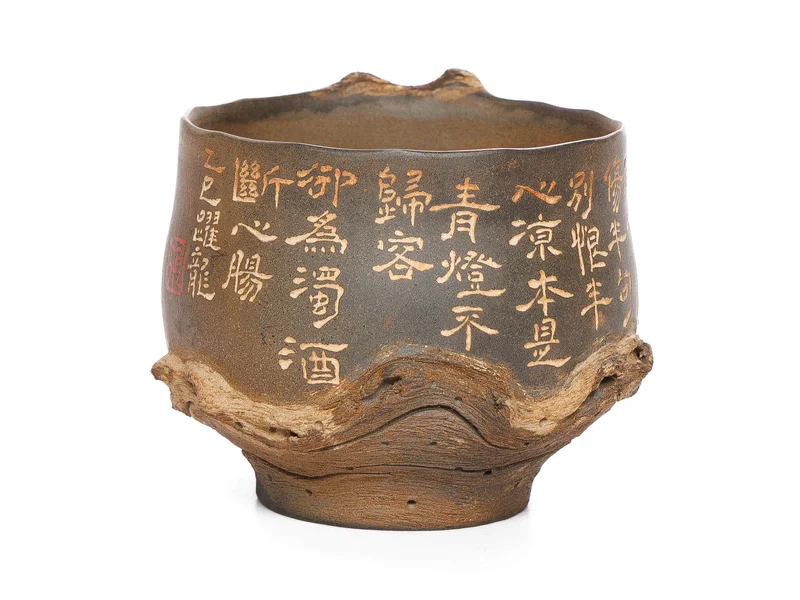 傷半句
別恨半
心涼本是
青燈不
歸客
卻為濁酒
斷心腸
乙巳躍龍